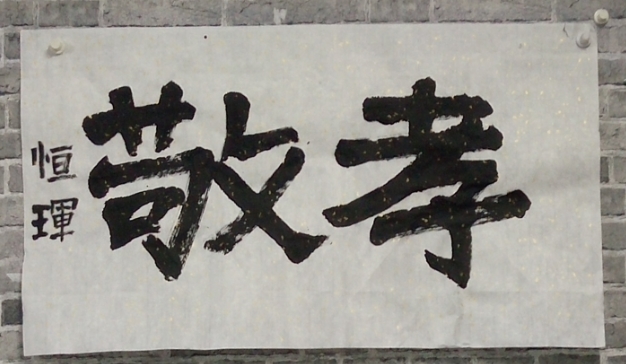 孝敬
恒琿